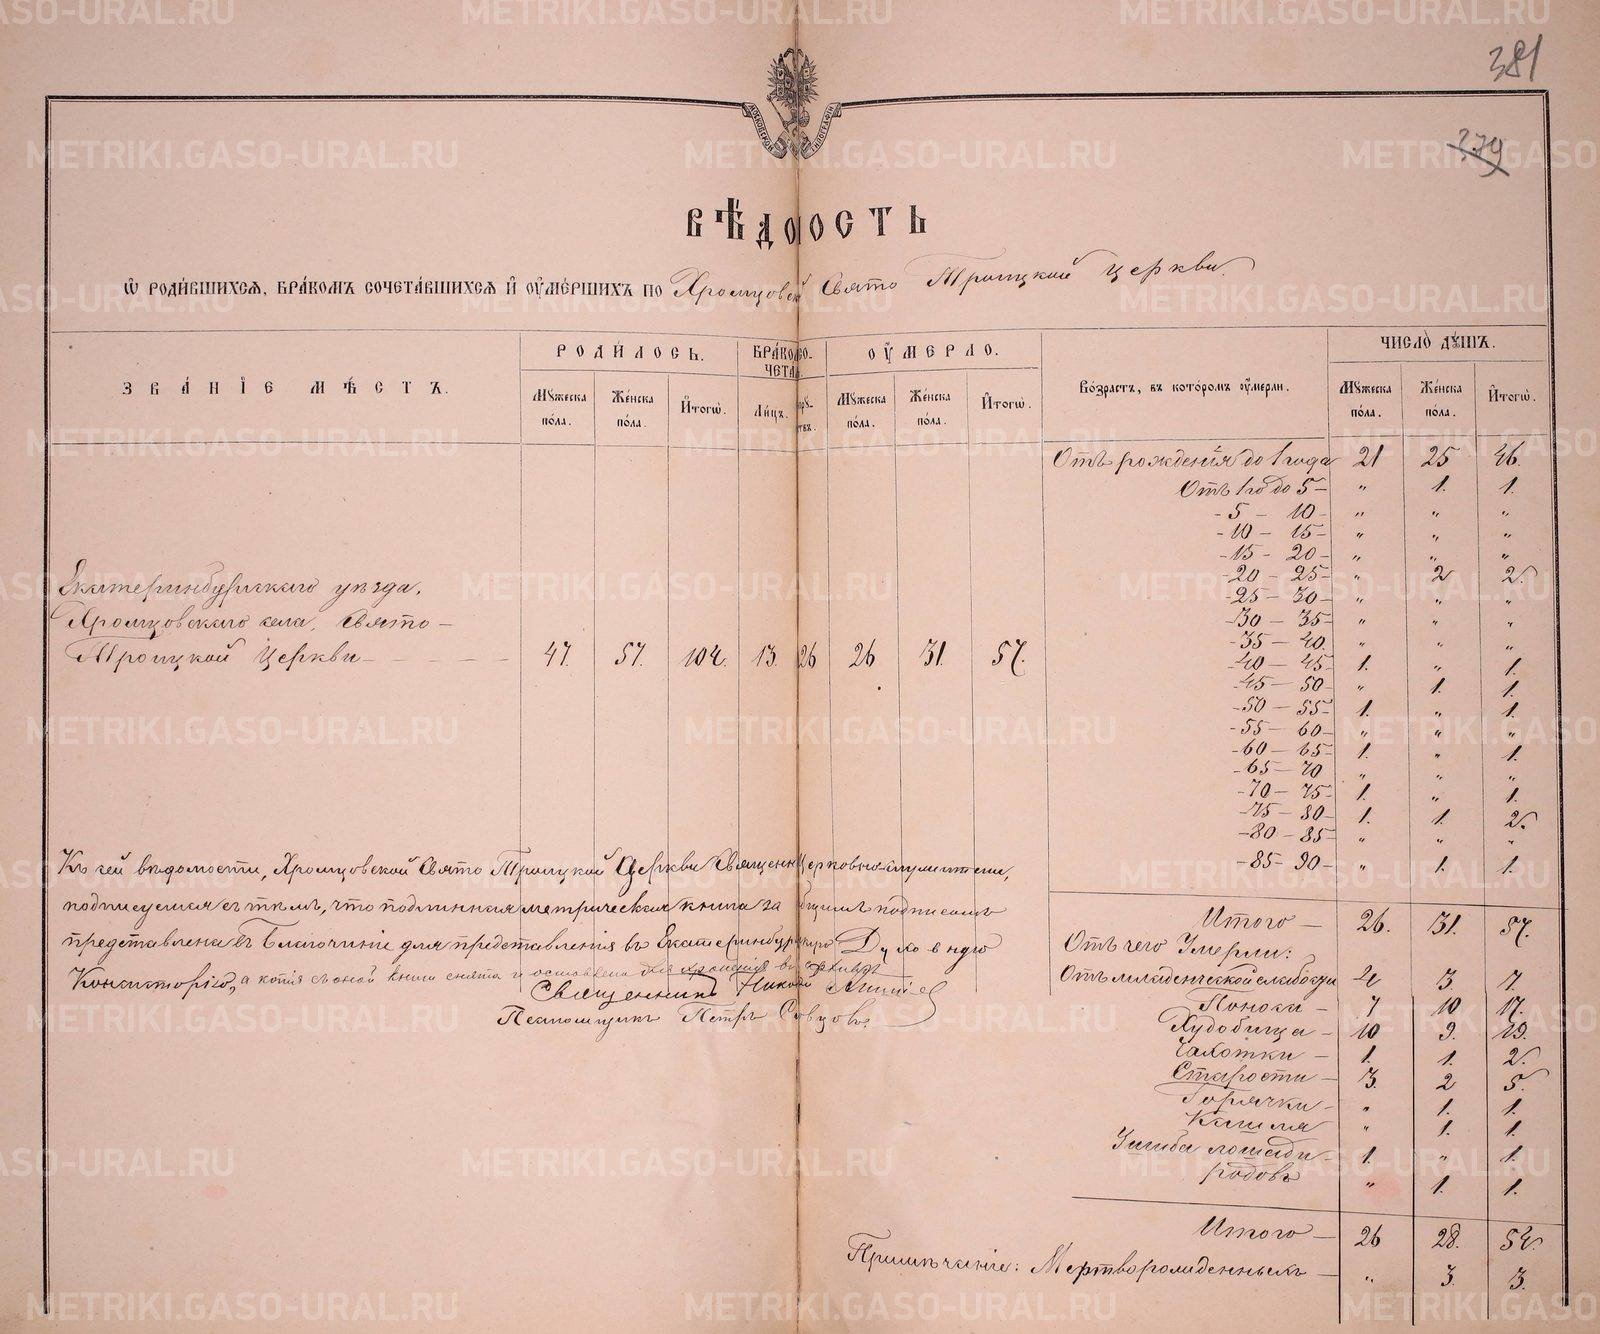 381
279
ВѢДОМОСТЬ
Ѡ РОДИВШИХСЯ, БРАКОМЪ СОЧЕТАВШИХСЯ И ОУМЕРШИХЪ ПО Хромцовской Свято Троицкой церкви.
ЗВАНІЕ МѢСТЪ.
РОДИЛОСЬ.
БРАКОСО-
ЧЕТАЛ.
ОУМЕРЛО.
Возрастъ, въ которомъ оумерли.
ЧИСЛО ДУШЪ.
Мужеска пола. Женска пола. Итогѡ. Лицъ. Мужеска пола. Женска пола. Итогѡ. Мужеска пола. Женска пола. Итогѡ.
Отъ рожденія до 1 года 21 25 46.
Отъ 1 го до 5 – „ 1. 1.
- 5 – 10 - „ „ „
- 10 – 15 - „ „ „
- 15 - 20 - „ „ „
- 20 – 25 - „ 2 2.
- 25 – 30 - „ „ „
- 30 – 35 - „ „ „
- 35 – 40. „ „ „
- 40 – 45 1. „ 1.
- 45 – 50 - „ 1. 1.
- 50 – 55 - 1. „ 1.
- 55 – 60 - „ „ „
- 60 – 65 1. „ 1.
- 65 – 70 „ „ „
- 70 – 75 - 1. „ 1.
- 75 – 80 - 1. 1. 2.
- 80 – 85 „ „ „
- 85 – 90 - „ 1. 1.
Екатеринбургскаго уѣзда,
Хромцовскаго села, Свято –
Троицкой Церкви – 47. 57. 104. 13. 26 26 31. 57.
Къ сей вѣдомости, Хромцовской Свято Троицкой Церкви Священно Церковно-служители,
подписуемся съ тѣмъ, что подлинная метрическая книга за общимъ подписомъ
представлена въ Благочиніе для представленія въ Екатеринбургскую Духовную
Консисторію, а копія съ оной книги снята и оставлена для храненія въ архивѣ
Священникъ Николай
Псаломщикъ Петръ
Итого – 26. 31. 57.
Отъ чего Умерли:
Отъ младенческой слабости 4 3. 7.
Поноса – 7 10 17.
Худобища – 10 9. 19.
Чахотки – 1. 1. 2.
Старости – 3. 2 5.
Горячки – „ 1. 1.
Кашля „ 1. 1.
Ушиба лошади – 1. „ 1.
родовъ „ 1. 1.
Итого – 26 28. 54.
Примѣчаніе: Мертворожденныхъ – „ 3. 3.
METRIKI.GASO-URAL.RU